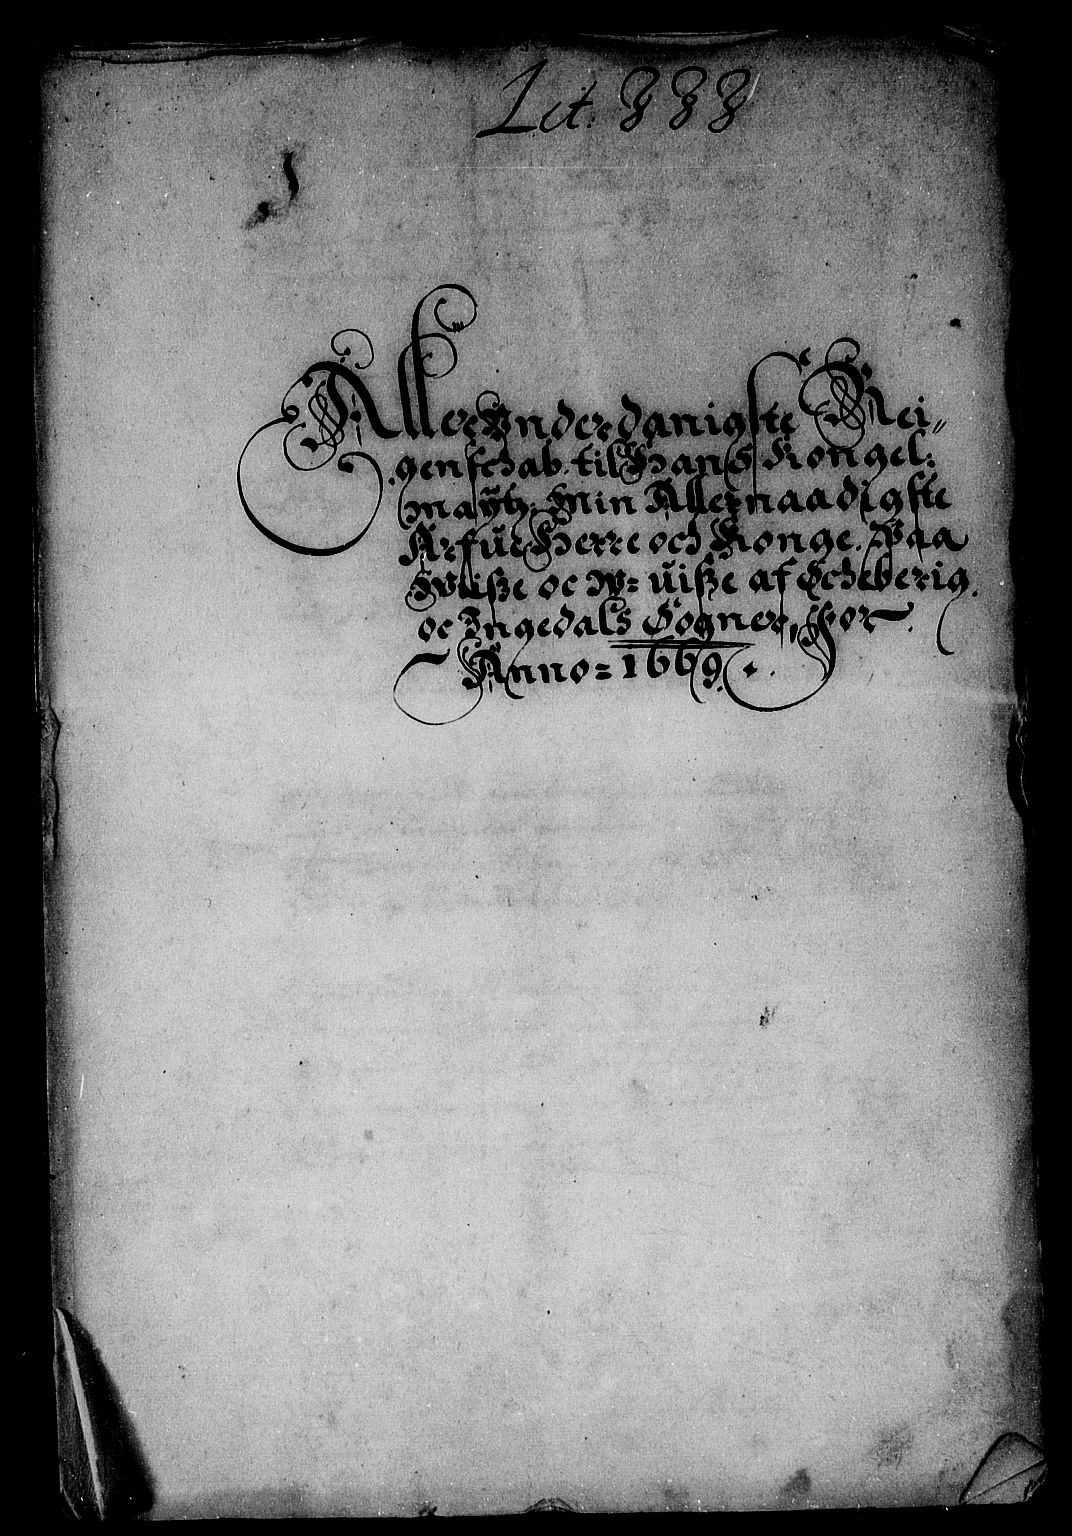 Lit. 
Aller Vnderdanigste Rei„
genschab. til Hans Kongel:
maÿtz. Min Allernaadigste
Arfue Herre och Konge. Paa
Wiße oc W= ŭiße af Scheberig
oc Ingedals Sogner, For
Anno = 1669.